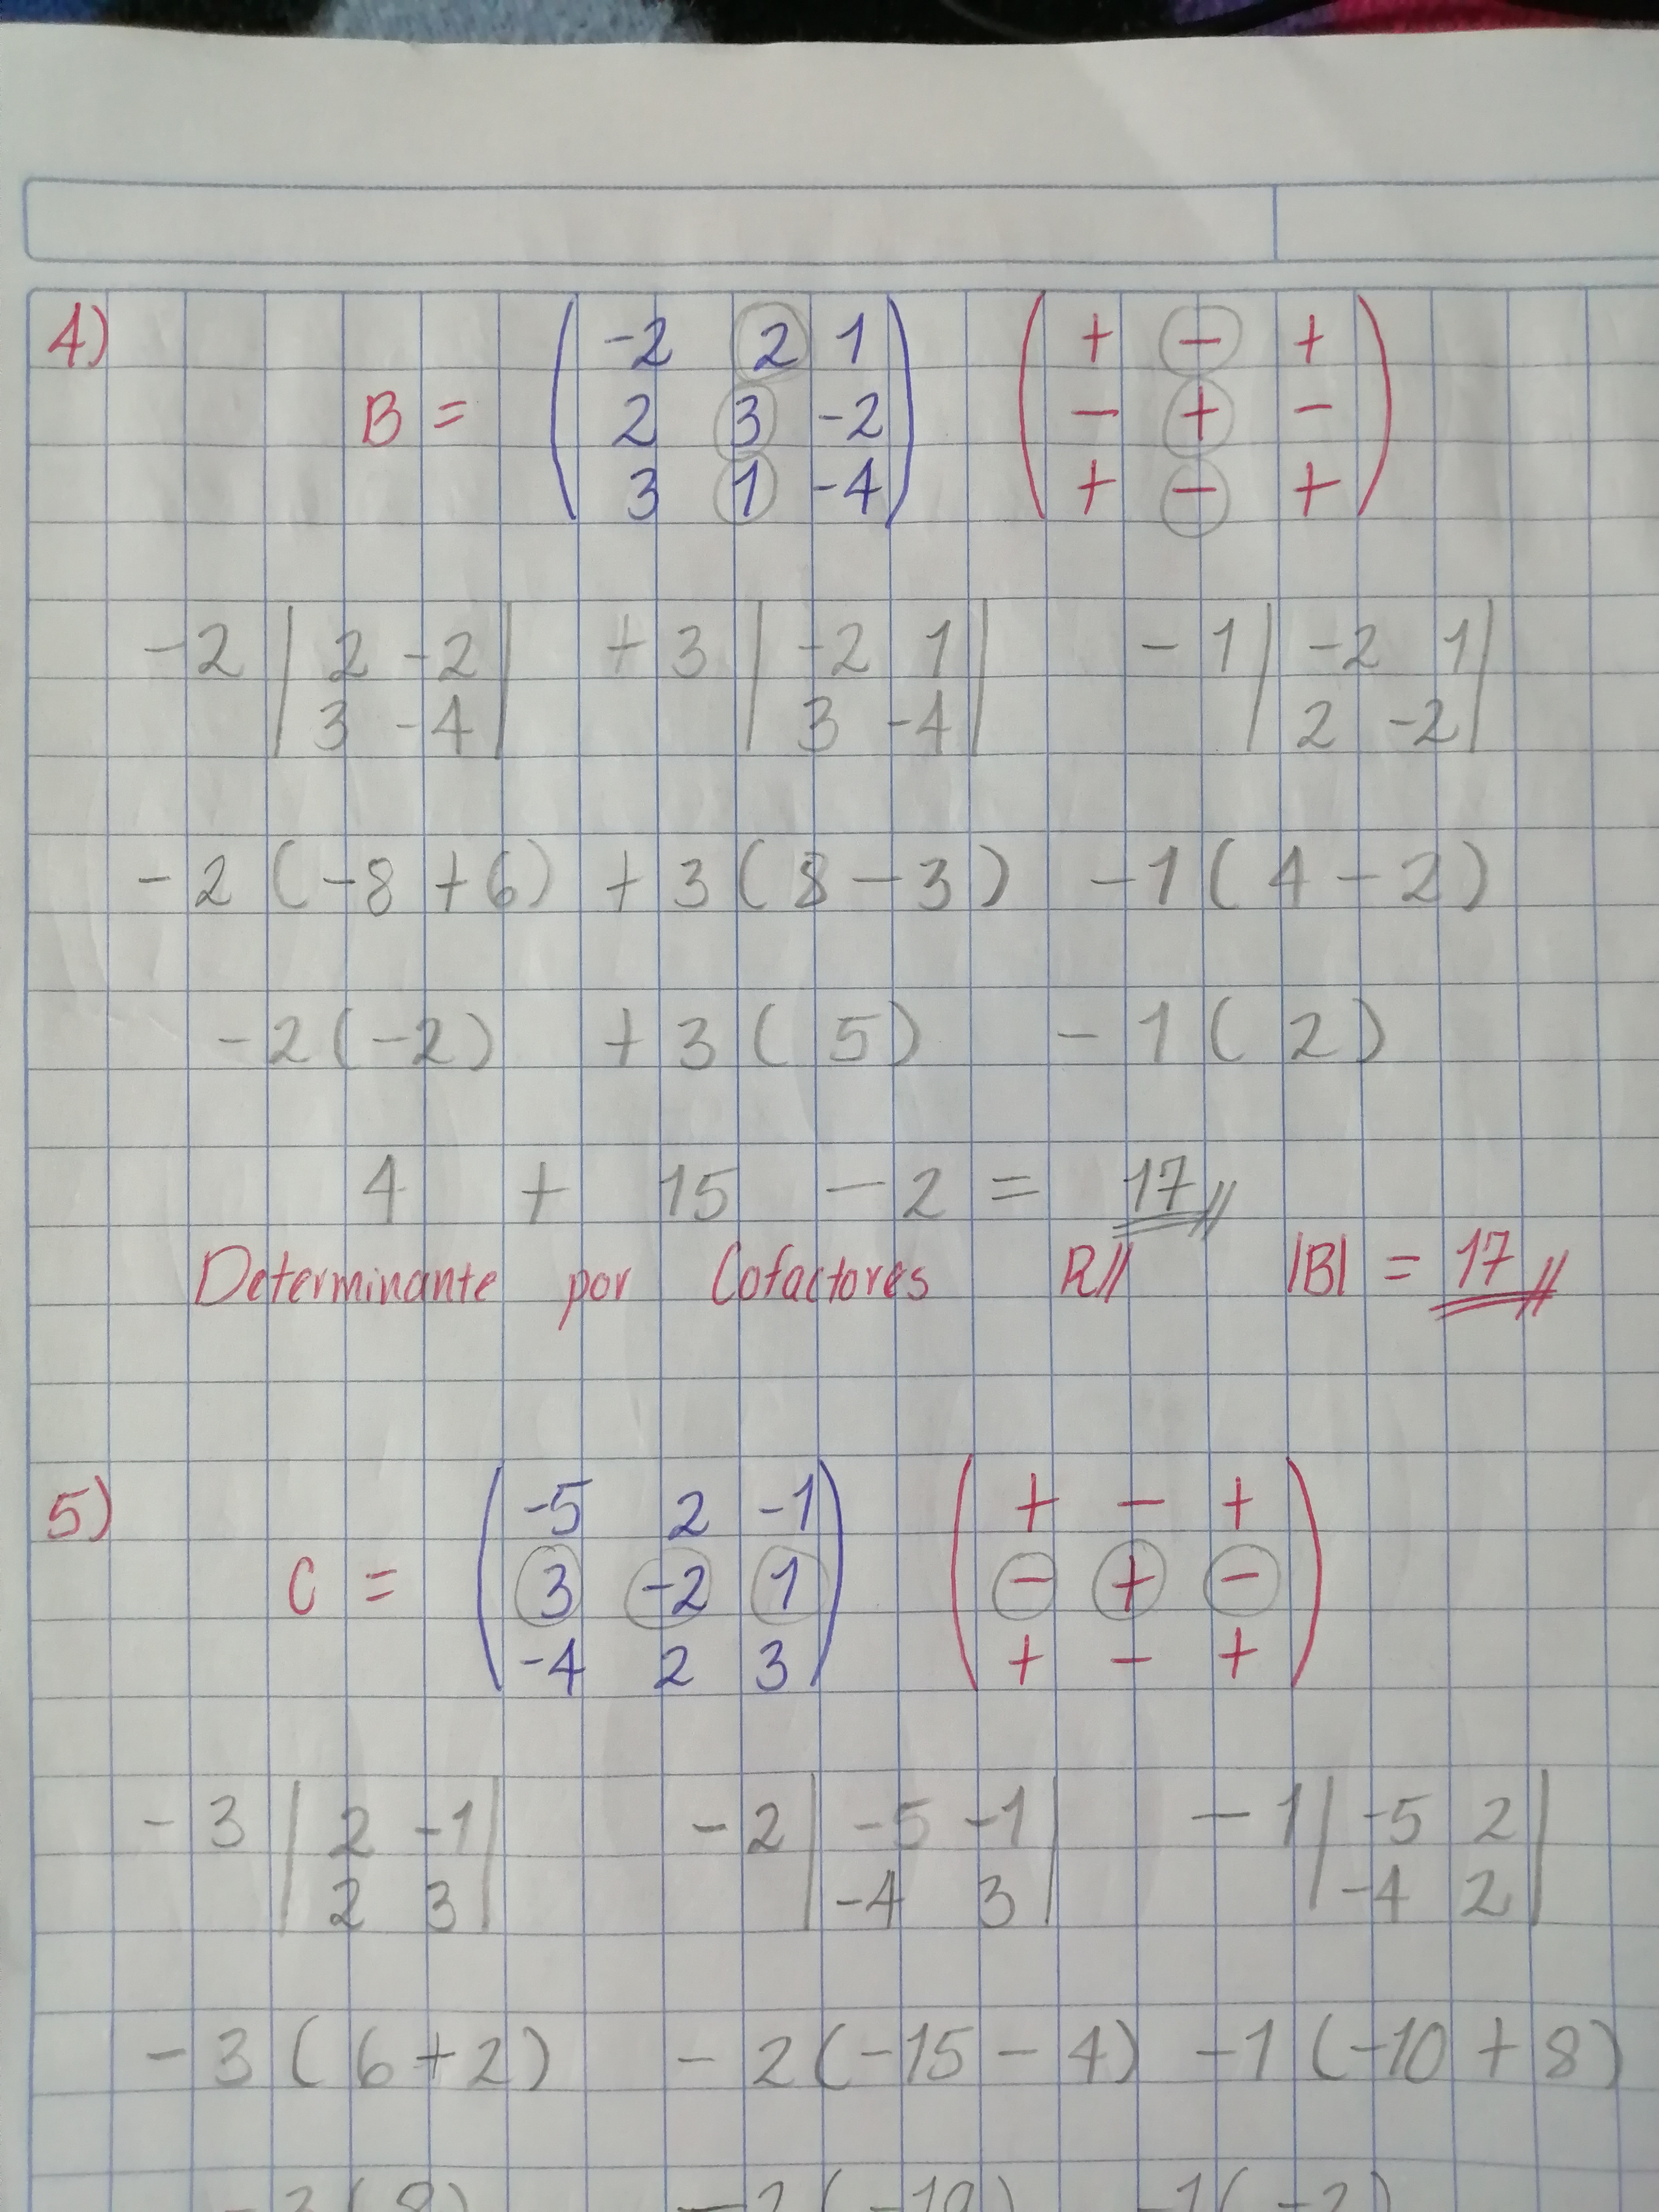 4)
B = ( -2 2 1 ) ( + - + )
( 2 3 -2 ) ( - + - )
( 3 1 -4 ) ( + - + )
-2 | 2 -2 | + 3 | -2 1 | - 1 | -2 1 |
| 3 -4 | | 3 -4 | | 2 -2 |
-2 (-8 + 6) + 3 (8 - 3) - 1 (4 - 2)
-2 (-2) + 3 (5) - 1 (2)
4 + 15 - 2 = 17//
Determinante por Cofactores R// |B| = 17//
5)
( -5 2 -1 ) ( + - + )
C = ( 3 -2 1 ) ( - + - )
( -4 2 3 ) ( + - + )
- 3 | 2 -1 | - 2 | -5 -1 | - 1 | -5 2 |
| 2 3 | | -4 3 | | -4 2 |
- 3 (6 + 2) - 2 (-15 - 4) - 1 (-10 + 8)
- 3 (8) - 2 (-19) - 1 (-2)